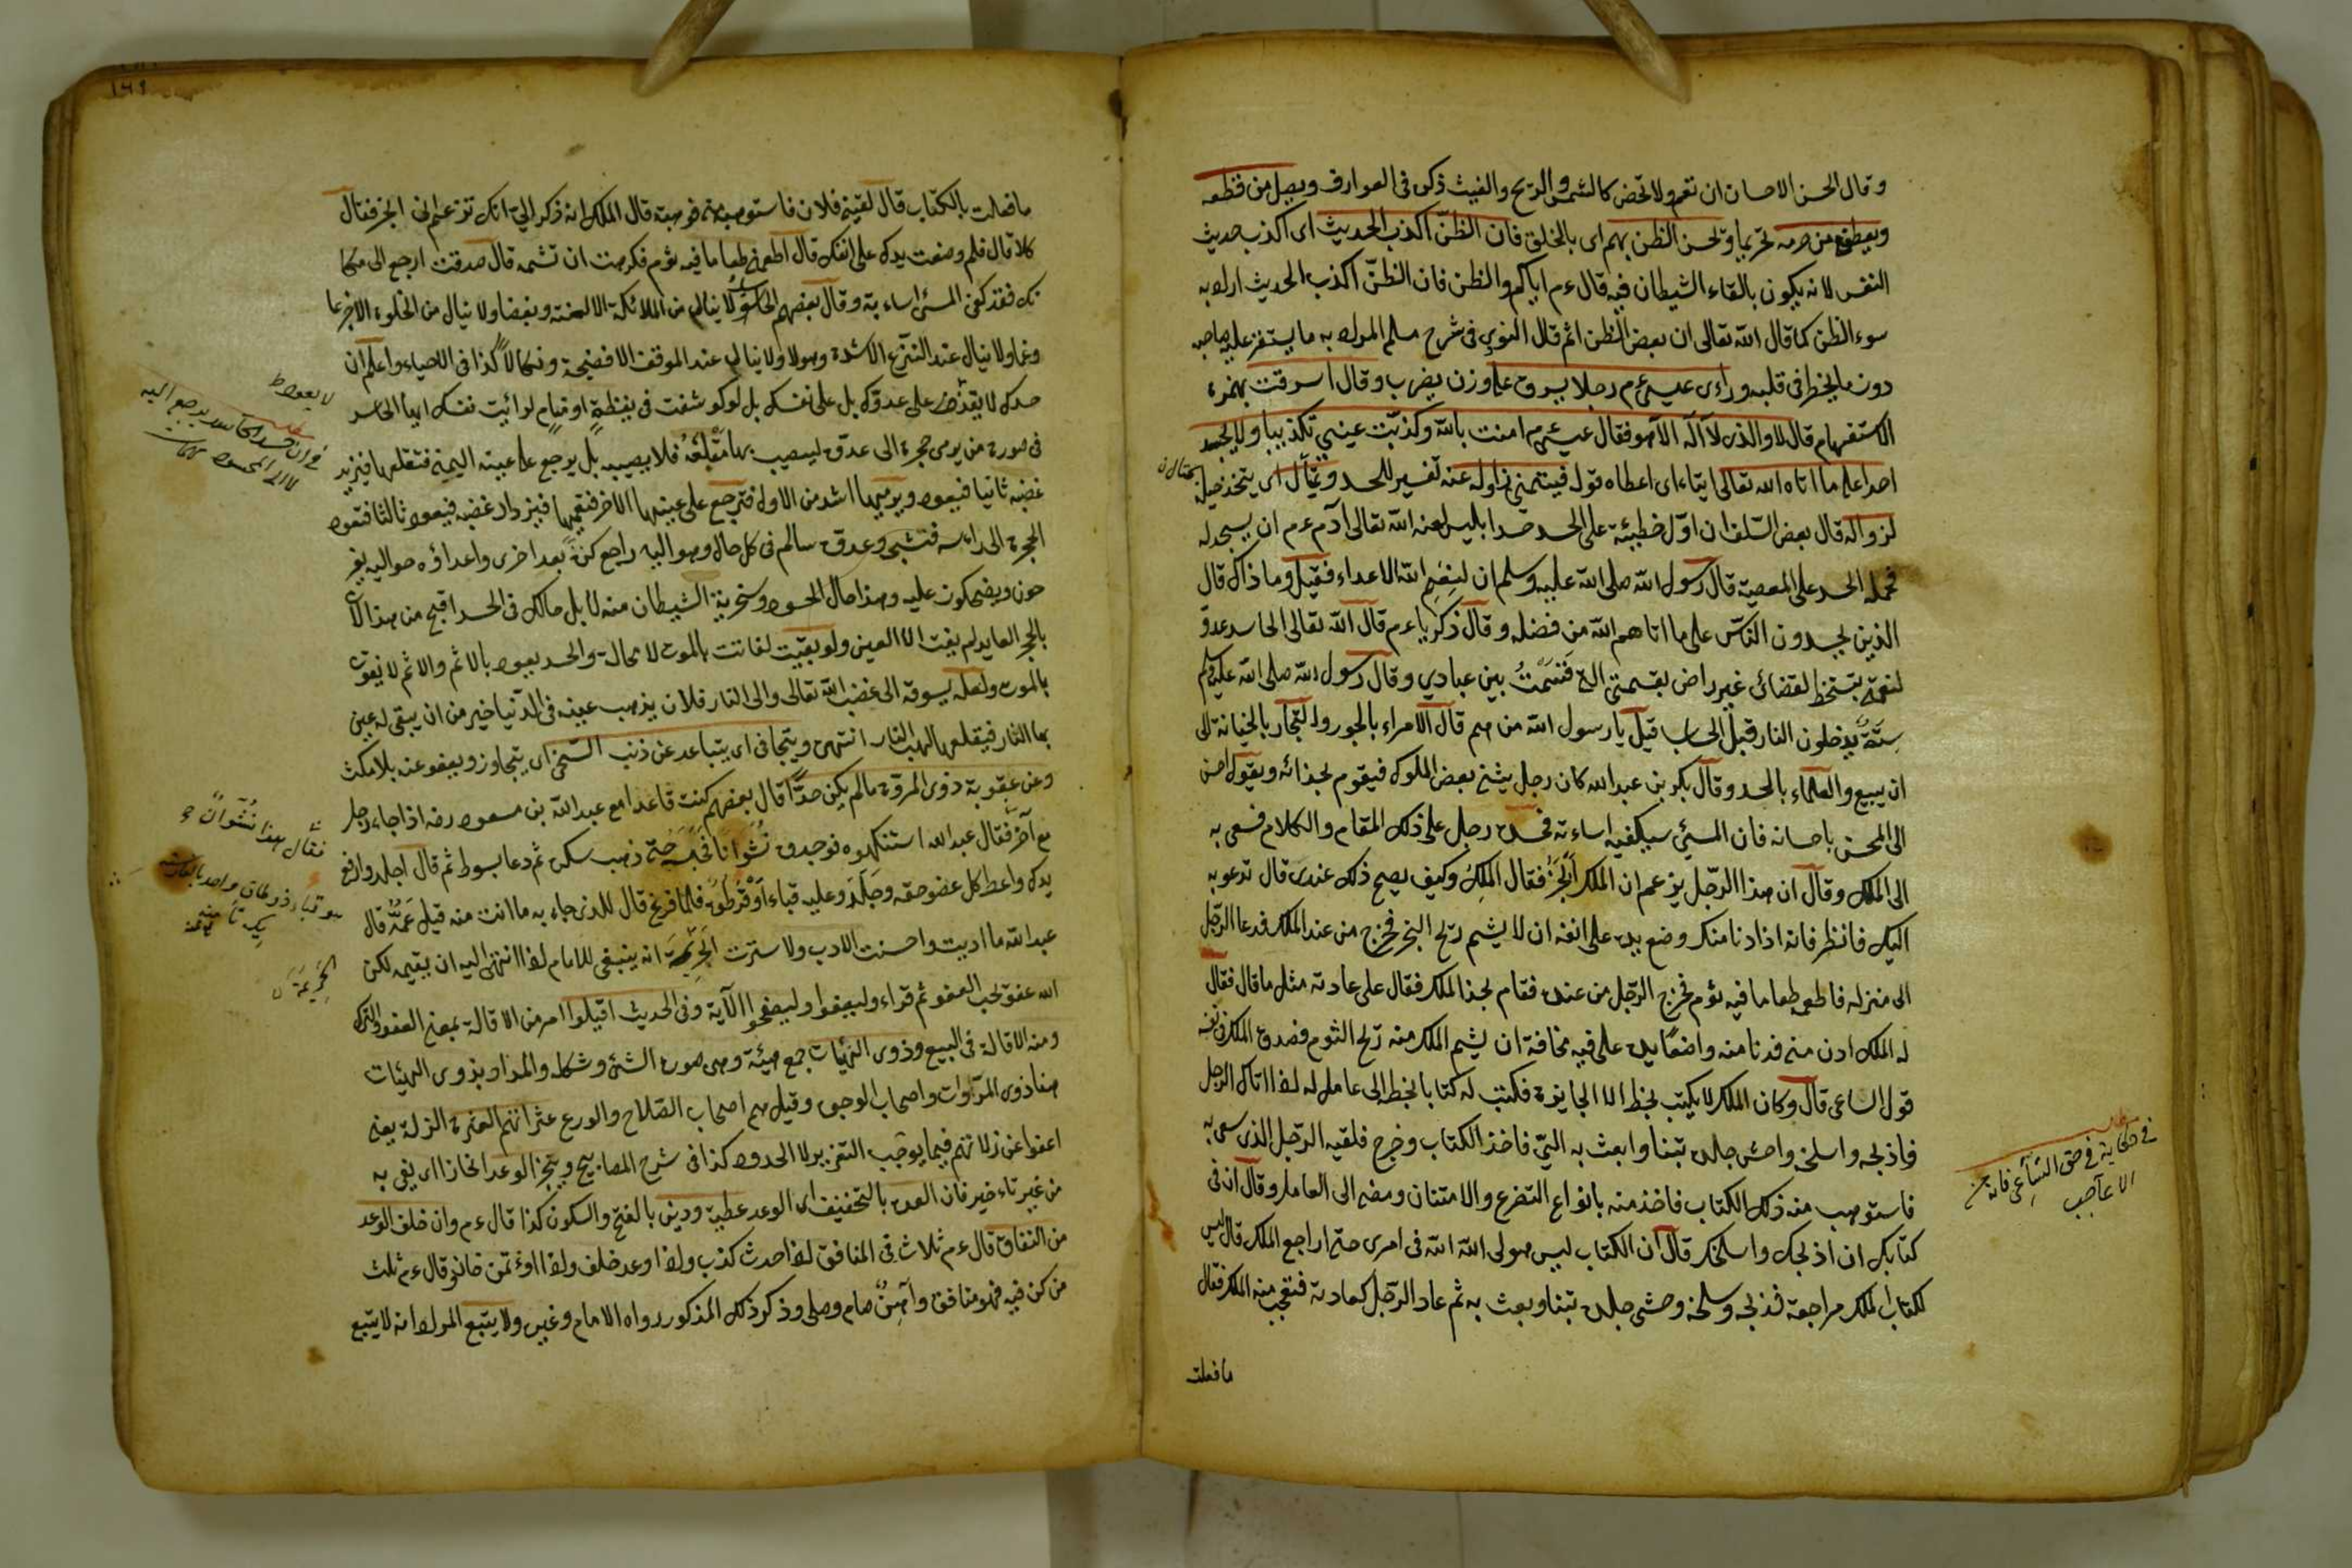 وقال الحسن الاحسان ان تعم ولا تخص كالشمس والريح والغيث ذكره في العوارف ويصل من قطعه
ويعطي من حرمه تحريما ويحسن الظن بهم اى بالخلق فان الظن اكذب الحديث اى اكذب حديث
النفس لانه يكون بالقاء الشيطان فيه قال ءم اياكم والظن فان الظن اكذب الحديث اراد به
سوء الظن كما قال الله تعالى ان بعض الظن اثم قال النووي فى شرح مسلم المراد به ما يستقر عليه صاحبه
دون ما يخطر فى قلبه وراءى عيسى ءم رجلا يسرق على وزن يضرب وقال اسرقت بهمزة
الاستفهام قال لا والذى لا اله الا هو فقال عيسى ءم امنت بالله وكذبت عينى تكذيبا ولا يحسد
احدا على ما اتاه الله تعالى ايتاء اى اعطاه قوله فيتمنى زواله عنه تفسير للحسد و اى يتخذ حيلة
لزواله قال بعض السلف ان اول خطيئة هى الحسد حسد ابليس لعنه الله تعالى آدم ءم ان يسجد له
فحمله الحسد على المعصية قال رسول الله صلى الله عليه وسلم ان لنعم الله الاعداء فقيل وما ذاك قال
الذين يحسدون الناس على ما اتاهم الله من فضله وقال زكريا ءم قال الله تعالى الحاسد عدو
لنعمتى متسخط لقضائى غير راض بقسمتى التى قسمت بين عبادي وقال رسول الله صلى الله عليه وسلم
ستة يدخلون النار قبل الحساب قيل يا رسول الله من هم قال الامراء بالجور والتجار بالخيانة الى
ان يبيع والعلماء بالحسد وقال بكر بن عبد الله كان رجل يشنى بعض الملوك فيقوم بحذائه ويقول احسن
الى المحسن باحسانه فان المسئ سيكفيه اساءته فحسده رجل على ذلك المقام والكلام فسعى به
الى الملك وقال ان هذا الرجل يزعم ان الملك ابخر فقال الملك وكيف يصح ذلك عندى قال تدعو به
اليك فانظر فانه اذا دنا منك وضع يده على انفه ان لا يشم ريح البخر فخرج من عند الملك فدعا الرجل
الى منزله فاطعمه طعاما فيه ثوم فخرج الرجل من عنده فقام بحذا الملك فقال على عادته مثل ما قال فقال
له الملك ادن منى فدنا منه واضعا يده على فيه مخافة ان يشم الملك منه ريح الثوم فصدق الملك فى نفسه
قول الساعى قال وكان الملك لا يكتب بخطه الا الجايزة فكتب له كتابا بخطه الى عامل له اذا اتاك الرجل
فاذبحه واسلخه واحش جلده تبنا وابعث به الى فاخذ الكتاب وخرج فلقيه الرجل الذى سعى به
فاستوهب منه ذلك الكتاب فاخذ منه بانواع التضرع والامتنان ومضى الى العامل وقال ان فى
كتابك ان اذبحك واسلخك قال ان الكتاب ليس هو لى الله الله فى امرى حتى اراجع الملك قال ليس
لكتاب الملك مراجعة فذبحه وسلخه وحشى جلده تبنا وبعث به ثم عاد الرجل كعادته فتعجب منه الملك فقال
ما فعلت
فى حكاية فى حق الساعى فانه من
الاعاجيب
١٦٩
ما فعلت بالكتاب قال لقينى فلان فاستوهبه منى فوهبته قال الملك انه ذكر الى انك تزعم انى ابخر فقال
كلا قال فلم وضعت يدك على انفك قال اطعمنى طعاما فيه ثوم فكرهت ان تشمه قال صدقت ارجع الى مكا
نك فقد كفى المسئ اساءته وقال بعضهم الحاسد لا ينال من الملائكة الا لعنة وبغضا ولا ينال من الخلق الا جزعا
وغما ولا ينال عند النزع الا شدة وهولا ولا ينال عند الموقف الا فضيحة ونكالا كذا فى الاحياء واعلم ان
حسدك لا ينفذ على عدوك بل على نفسك بل لو كوشفت فى يقظة او منام لرائيت نفسك ايها الحاسد
فى صورة من يرمى حجرة الى عدوه ليصيب بها مقلته فلا يصيبه بل يرجع على عينه اليمنى فتقلعها فيزيد
غضبه ثانيا فيعود ويرميها اشد من الاول فترجع على عينها الاخر فتعميها فيزداد غضبه فيعود ثالثا فتعود
الحجرة الى راسه فتشجه وعدوه سالم فى كل حال وهو اليه راجع كرة بعد اخرى واعداؤه حواليه يفر
حون ويضحكون عليه وهذا حال الحسود وسخرية الشيطان منه لا بل حالك فى الحسد اقبح من هذا لان
بالحجر العايد لم يفت الا العين ولو بقيت لفاتت بالموت لا محالة والحسد يعود بالاثم والاثم لا يفوت
بالموت ولعله يسوقه الى غضب الله تعالى والى النار فلان يذهب عينه فى الدنيا خير من ان يبقى له عين
بها النار فيقلعها لهب النار انتهى ويتجافى اى يتباعد عن ذنب السخى اى يتجاوز ويعفو عنه بلا مكث
وعن عقوبة ذوى المروة ما لم يكن حدا قال بعضهم كنت قاعدا مع عبد الله بن مسعود رضه اذا جاء رجل
مع آخر فقال عبد الله استنكهوه فوجدوه نشوانا فحبسه حتى ذهب سكره ثم دعا بسوط ثم قال اجلد وارفع
يدك واعط كل عضو حقه وجلده وعليه قباء او قرطق فلما فرغ قال للذى جاء به ما انت منه قيل عمه قال
عبد الله ما ادبت واحسنت الادب ولا سترت الجريمة انه ينبغى للامام اذا انتهى اليه ان يقيمه لكن
الله عفو يحب العفو ثم قراء وليعفوا وليصفحوا الآية وفى الحديث اقيلوا امر من الاقالة بمعنى العفو والترك
ومنه الاقالة فى البيع وذوى الهيئات جمع هيئة وهى صورة الشئ وشكله والمراد بذوى الهيئات
هنا ذوى المروات واصحاب الوجوه وقيل هم اصحاب الصلاح والورع عثراتهم العثرة الزلة يعنى
اعفوا عن زلاتهم فيما يوجب التعزير لا الحدود كذا فى شرح المصابيح وينجز الوعد انجازا اى يفى به
من غير تاءخير فان العدة بالتخفيف اى الوعد عطية ودين بالفتح والسكون كذا قال ءم وان خلف الوعد
من النفاق قال ءم ثلاث فى المنافق اذا حدث كذب واذا وعد خلف واذا اوءتمن خان وقال ءم ثلث
من كن فيه فهو منافق وان صام وصلى وذكر ذلك المذكور رواه الامام وغيره ولا يتبع المراد انه لا يتبع
فى ان حسد الحاسد يرجع اليه
لا الى المحسود
فقال هذا نشوان
هو قباء ذو طاق واحد
الجريمة